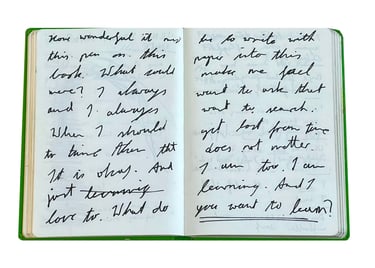 How wonderful it
this pen on. this
book. What could
I always
and I always
When I should
to time then
It is okay. And
just learning
love to. What do
be to write with
paper into this
makes me feel
want to ask that
want to search.
get lost from time
does not matter.
I am too. I am
learning. And I
you want to learn?